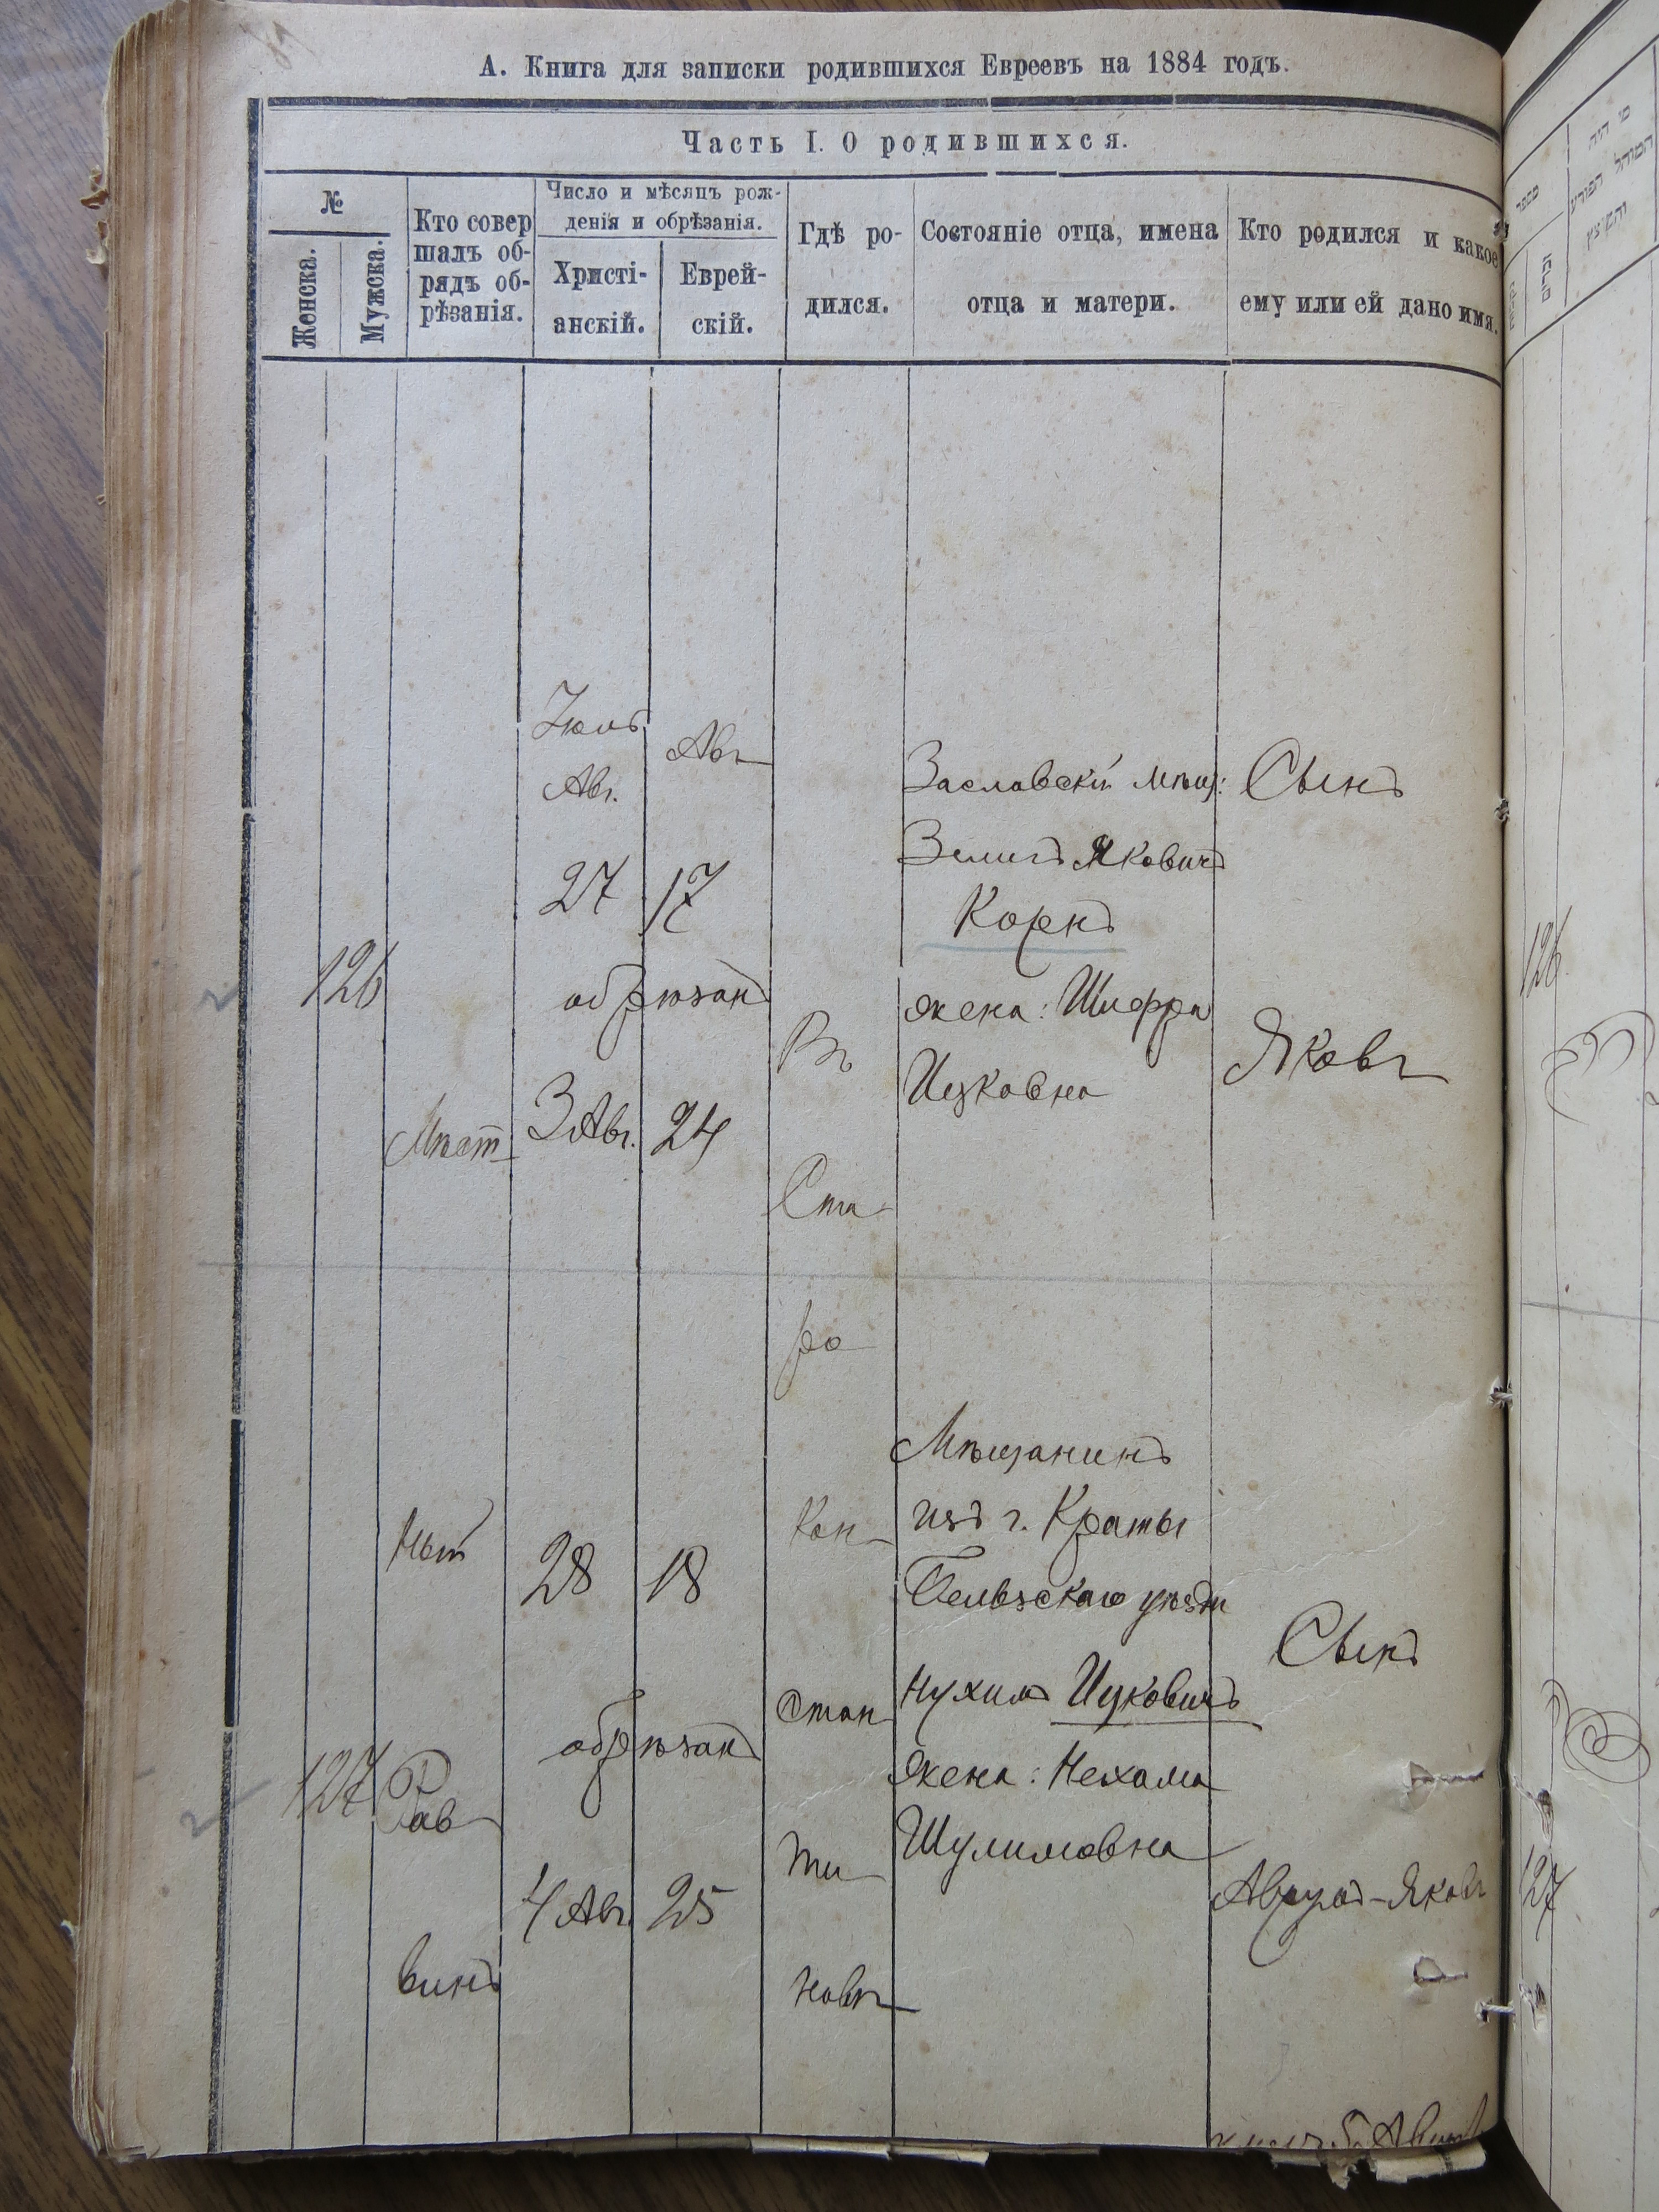 А. Книга для записки родившихся Евреевъ на 1884 годъ.
Часть I. О родившихся.
№
Женска.
Мужска.
Кто совер
шалъ об-
рядъ об-
рѣзанія.
Число и мѣсяцъ рож-
денія и обрѣзанія.
Христі-
анскій.
Еврей-
скій.
Гдѣ ро-
дился.
Состояніе отца, имена
отца и матери.
Кто родился и какое
ему или ей дано имя.
126
Мѣст-
Авг.
27
17
обрѣзанъ
3 Авг. 24
Въ
Ста-
ро
Заславскій мѣщ:
Зелигъ Яковичъ
Коренъ
жена: Шифра
Ицковна
Сынъ
Яковъ
127
ный
Рав-
винъ
28
18
обрѣзанъ
4 Авг. 25
Кон-
стан-
ти-
новѣ
Мѣщанинъ
изъ г. Краты
Бельзскаго уѣзда
Нухимъ Ицковичъ
жена: Нехама
Шулимовна
Сынъ
Аврумъ-Яковъ
126
127